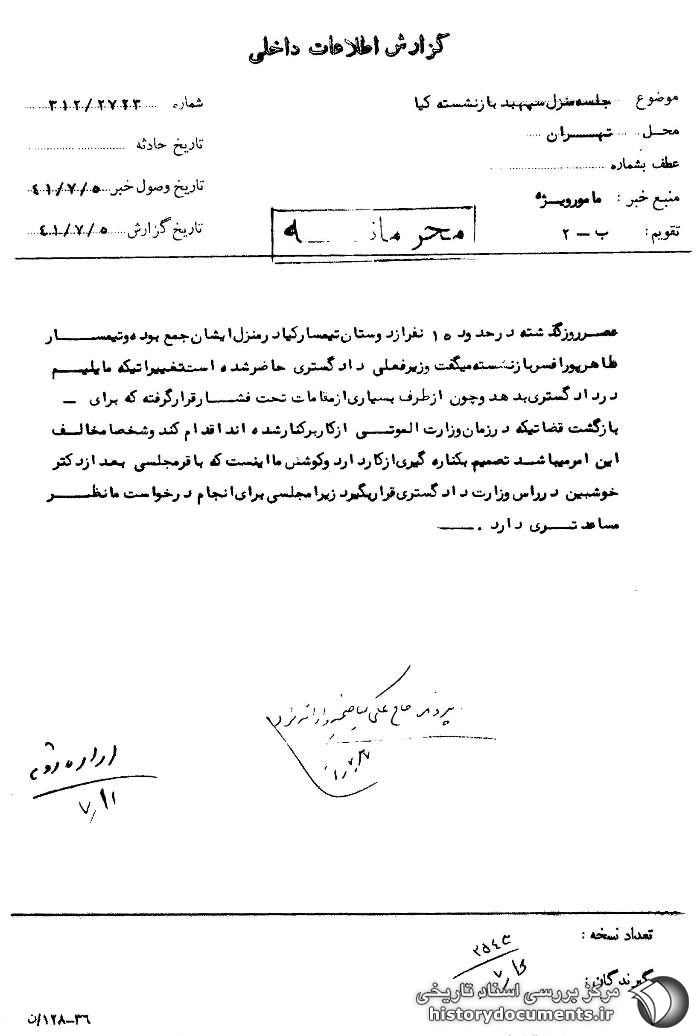 گزارش اطلاعات داخلی
موضوع جلسه منزل سپهبد بازنشسته کیا
شماره ۳۱۲/۲۷۲۳
محل تهران
تاریخ حادثه
عطف بشماره
تاریخ وصول خبر ۴۱/۷/۵
منبع خبر : مامور ویژه
تاریخ گزارش ۴۱/۷/۵
تقویم: ب – ۲
محرمانه
عصر روز گذشته در حدود ۱۵ نفر از دوستان تیمسار کیا در منزل ایشان جمع بوده و تیمسار
طاهرپور افسر بازنشسته میگفت وزیر فعلی دادگستری حاضر شده است تغییراتیکه مایلیم
در دادگستری بدهد و چون از طرف بسیاری از مقامات تحت فشار قرار گرفته که برای –
بازگشت قضاتیکه در زمان وزارت الموتی از کار برکنار شده اند اقدام کند و شخصا مخالف
این امر میباشد تصمیم بکناره گیری از کار دارد و کوشش ما اینست که باقر مجلسی بعد از دکتر
خوشبین در راس وزارت دادگستری قرار بگیرد زیرا مجلسی برای انجام درخواست ما نظر
مساعدتری دارد .
اداره
۷/۱۱
تعداد نسخه :
گیرندگان:
مرکز بررسی اسناد تاریخی
historydocuments.ir
۳۶–۱۲۸/ن